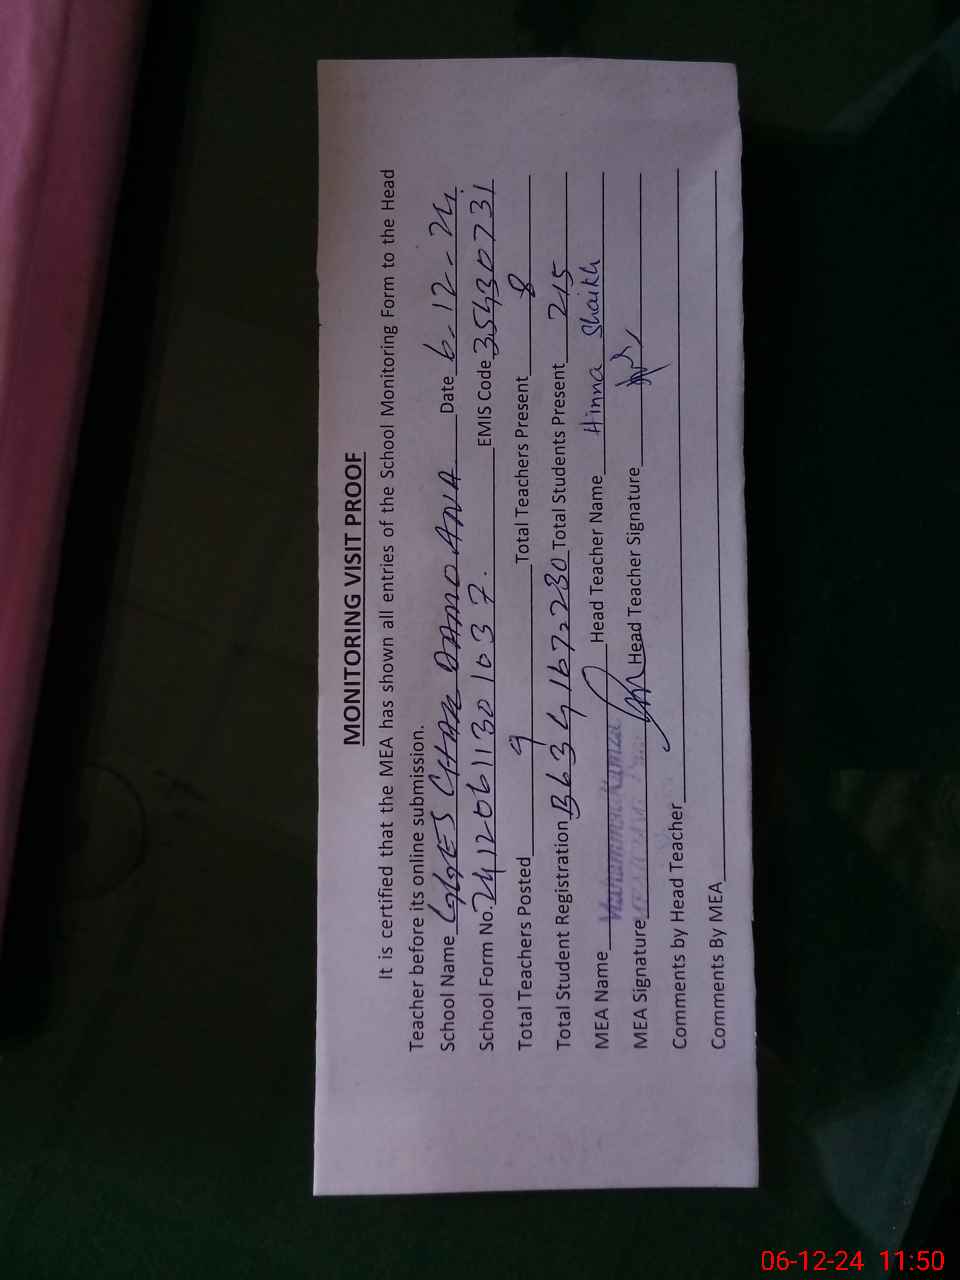 MONITORING VISIT PROOF
It is certified that the MEA has shown all entries of the School Monitoring Form to the Head
Teacher before its online submission.
School Name GGES CHAK DAMOANA Date 6-12-24
School Form No. 24120611301037. EMIS Code 35430731
Total Teachers Posted 9 Total Teachers Present 8
Total Student Registration B63G167=230 Total Students Present 215
MEA Name Head Teacher Name Hinna Shaikh
MEA Signature Head Teacher Signature
Comments by Head Teacher
Comments By MEA
06-12-24 11:50